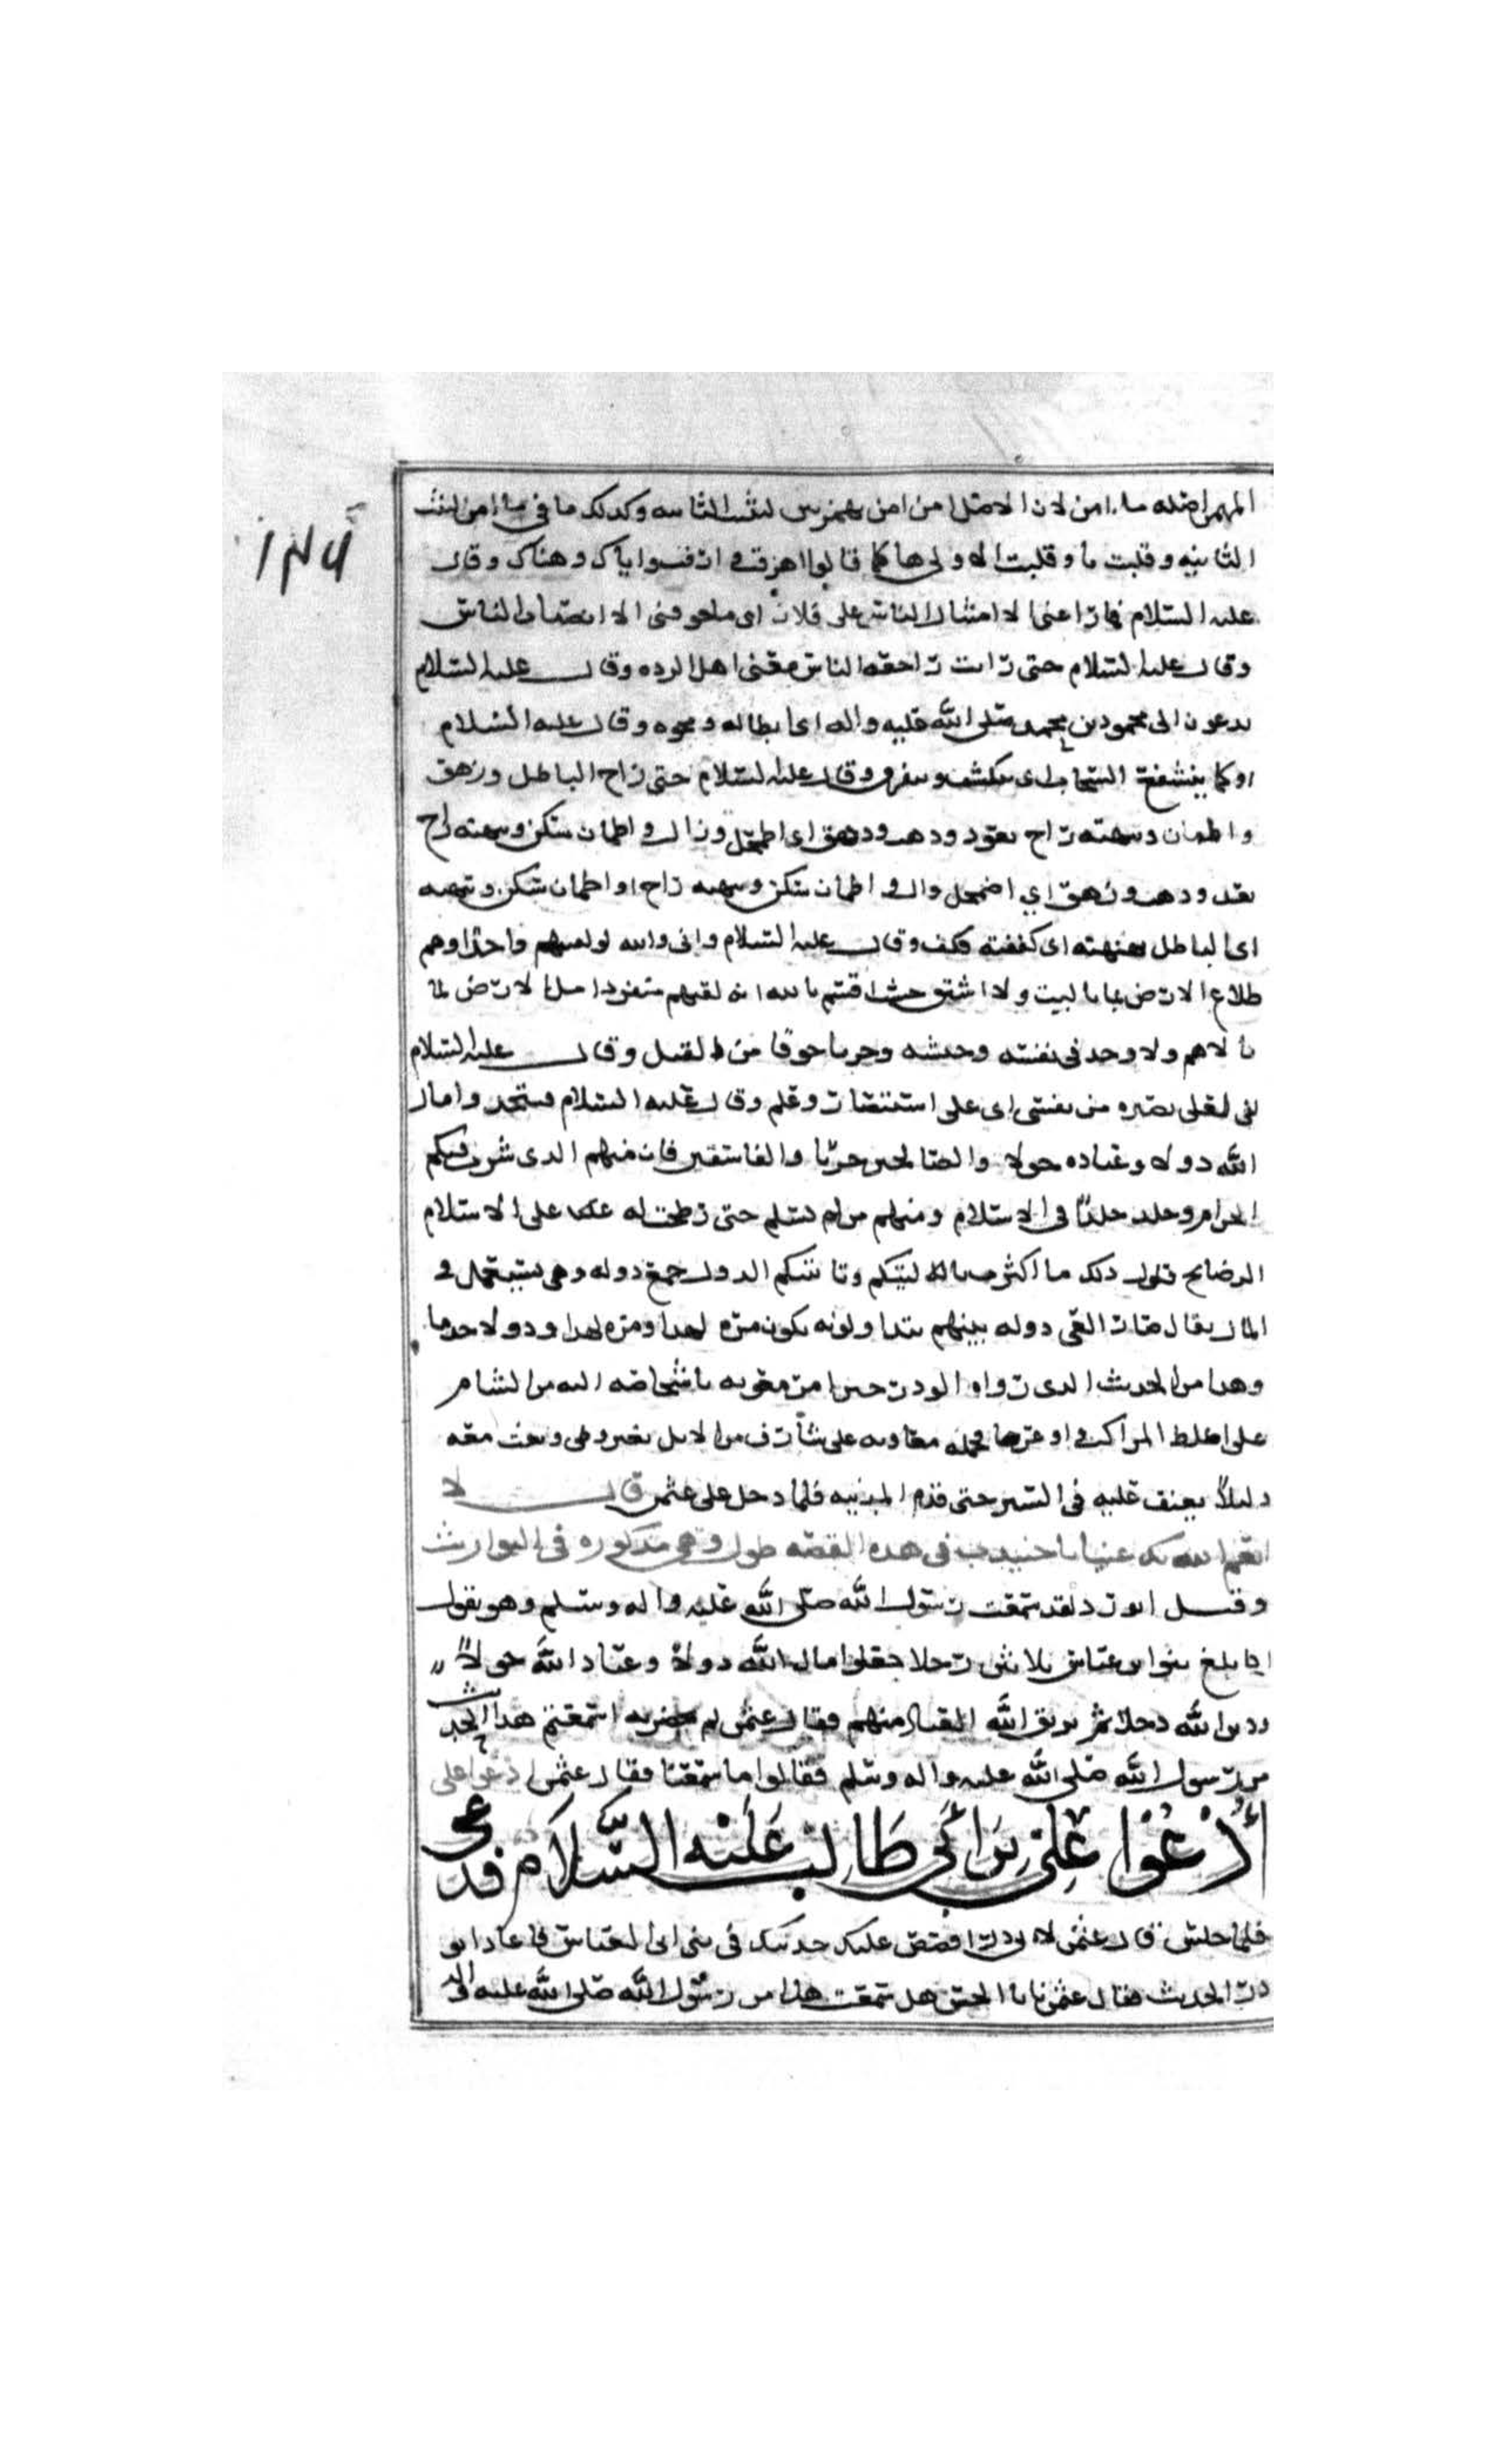 المهيمن اصله ما امن لان الاصل امن امن بهمزتين لينت الثانيه وكذلك ما في ما امن لينت
الثانيه وقلبت يا وقلبت الاولى ها كما قالوا اهرقت في ارقت وايّاك وهيّاك وقال
عليه السلام فما راعني الا انثيال الناس على فلان اي ما خوفني الا انصباب الناس
وقال عليه السلام حتى رايت راجعه الناس يعني اهل الرده وقال عليه السلام
يدعون الى محو دين محمد صلى الله عليه واله اي ابطاله ومحوه وقال عليه السلام
او كما يتقشع السحاب اي ينكشف ويتفرق وقال عليه السلام حتى زاح الباطل وزهق
واطمان وتنهنه زاح بعد وذهب وزهق اي اضمحل وزال واطمان سكن وتنهنه زاح
بعد وذهب وزهق اي اضمحل وال واطمان سكن وتنهنه زاح او اطمان سكن وتنهنه
اي الباطل نهنهته اي كففته فكف وقال عليه السلام واني والله لو لقيتهم واحدا وهم
طلاع الارض ما باليت ولا استوحشت اقسم بالله انه لقيهم منفردا مل الارض لما
بالاهم ولا وجد في نفسه وحشه وجزعا خوفا من القتل وقال عليه السلام
اني لعلى بصيره من نفسي اي على استبصار وعلم وقال عليه السلام فيتخذوا مال
الله دولا وعباده خولا والصالحين حربا والفاسقين فان منهم الذي شرب فيكم
الحرام وجلد حدا في الاسلام ومنهم من لم يسلم حتى رضخت له على الاسلام
الرضائخ فلولا ذلك ما اكثرت تاليبكم وتانيبكم الدول جمع دوله وهي يستعمل في
المال يقال صار الفي دوله بينهم يتداولونه يكون مره لهذا ومره لهذا
وهذا من الحديث الذي رواه ابو ذر حين امر معويه باشخاصه اليه من الشام
على اغلظ المراكب واوعرها فحمله معاويه على شارف من الابل بغير وطي وبعث معه
دليلا يعنف عليه في السير حتى قدم المدينه فلما دخل على عثمن قال لا
انعم الله بك عينا يا جنيدب في هذه القصه طول وهي مذكوره في التواريخ
وقال ابو ذر لقد سمعت رسول الله صلى الله عليه واله وسلم وهو يقول
اذا بلغ بنو ابي عياص ثلاثين رجلا جعلوا مال الله دولا وعباد الله خولا
ودين الله دخلا ثم يريح الله العباد منهم فقال عثمن لمن حضر به اسمعتم هذا الحديث
من رسول الله صلى الله عليه واله وسلم فقالوا ما سمعنا فقال عثمن ادعوا علي
ادعوا علي بن ابي طالب عليه السلام فدعي
فلما جلس قال عثمن لابي ذر اقصص عليك حديثك في بني ابي العياص فاعاد ابو
ذر الحديث فقال عثمن يابا الحسن هل سمعت هذا من رسول الله صلى الله عليه واله